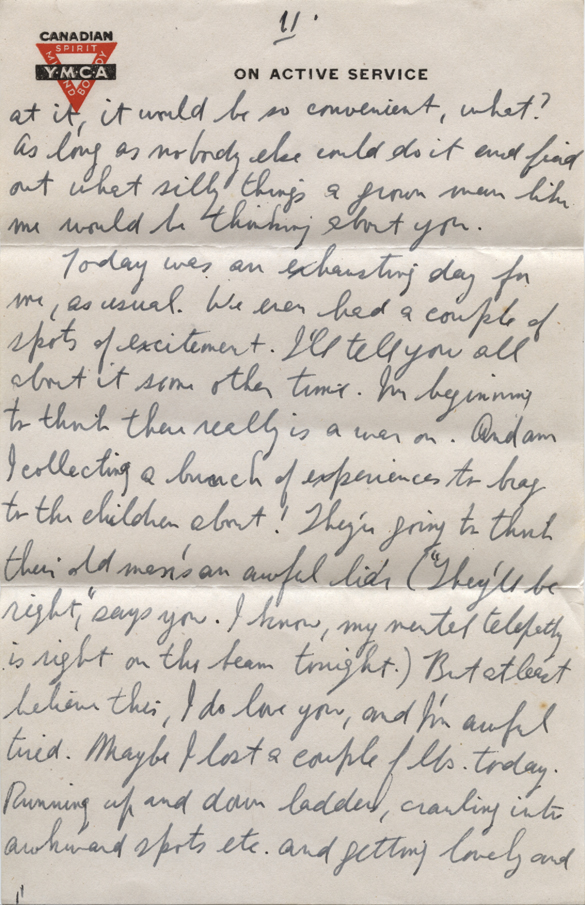 11.
CANADIAN
SPIRIT
MIND BODY
Y·M·C·A
ON ACTIVE SERVICE
at it, it would be so convenient, what?
As long as nobody else could do it and find
out what silly things a grown man like
me would be thinking about you.
Today was an exhausting day for
me, as usual. We even had a couple of
spots of excitement. I'll tell you all
about it some other time. I'm beginning
to think there really is a war on. And am
I collecting a bunch of experiences to brag
to the children about! They're going to think
their old man's an awful liar ("They'll be
right," says you. I know, my mental telepathy
is right on the beam tonight.) But at least
believe this, I do love you, and I'm awful
tired. Maybe I lost a couple of lbs. today.
Running up and down ladders, crawling into
awkward spots etc. and getting lovely and